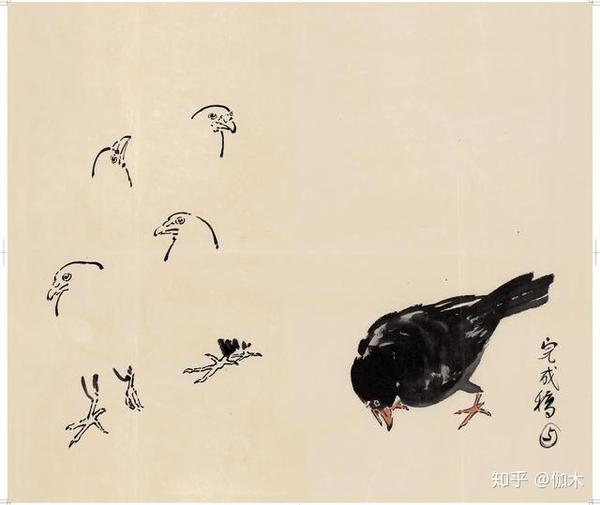 完成稿
5
知乎 @伽木